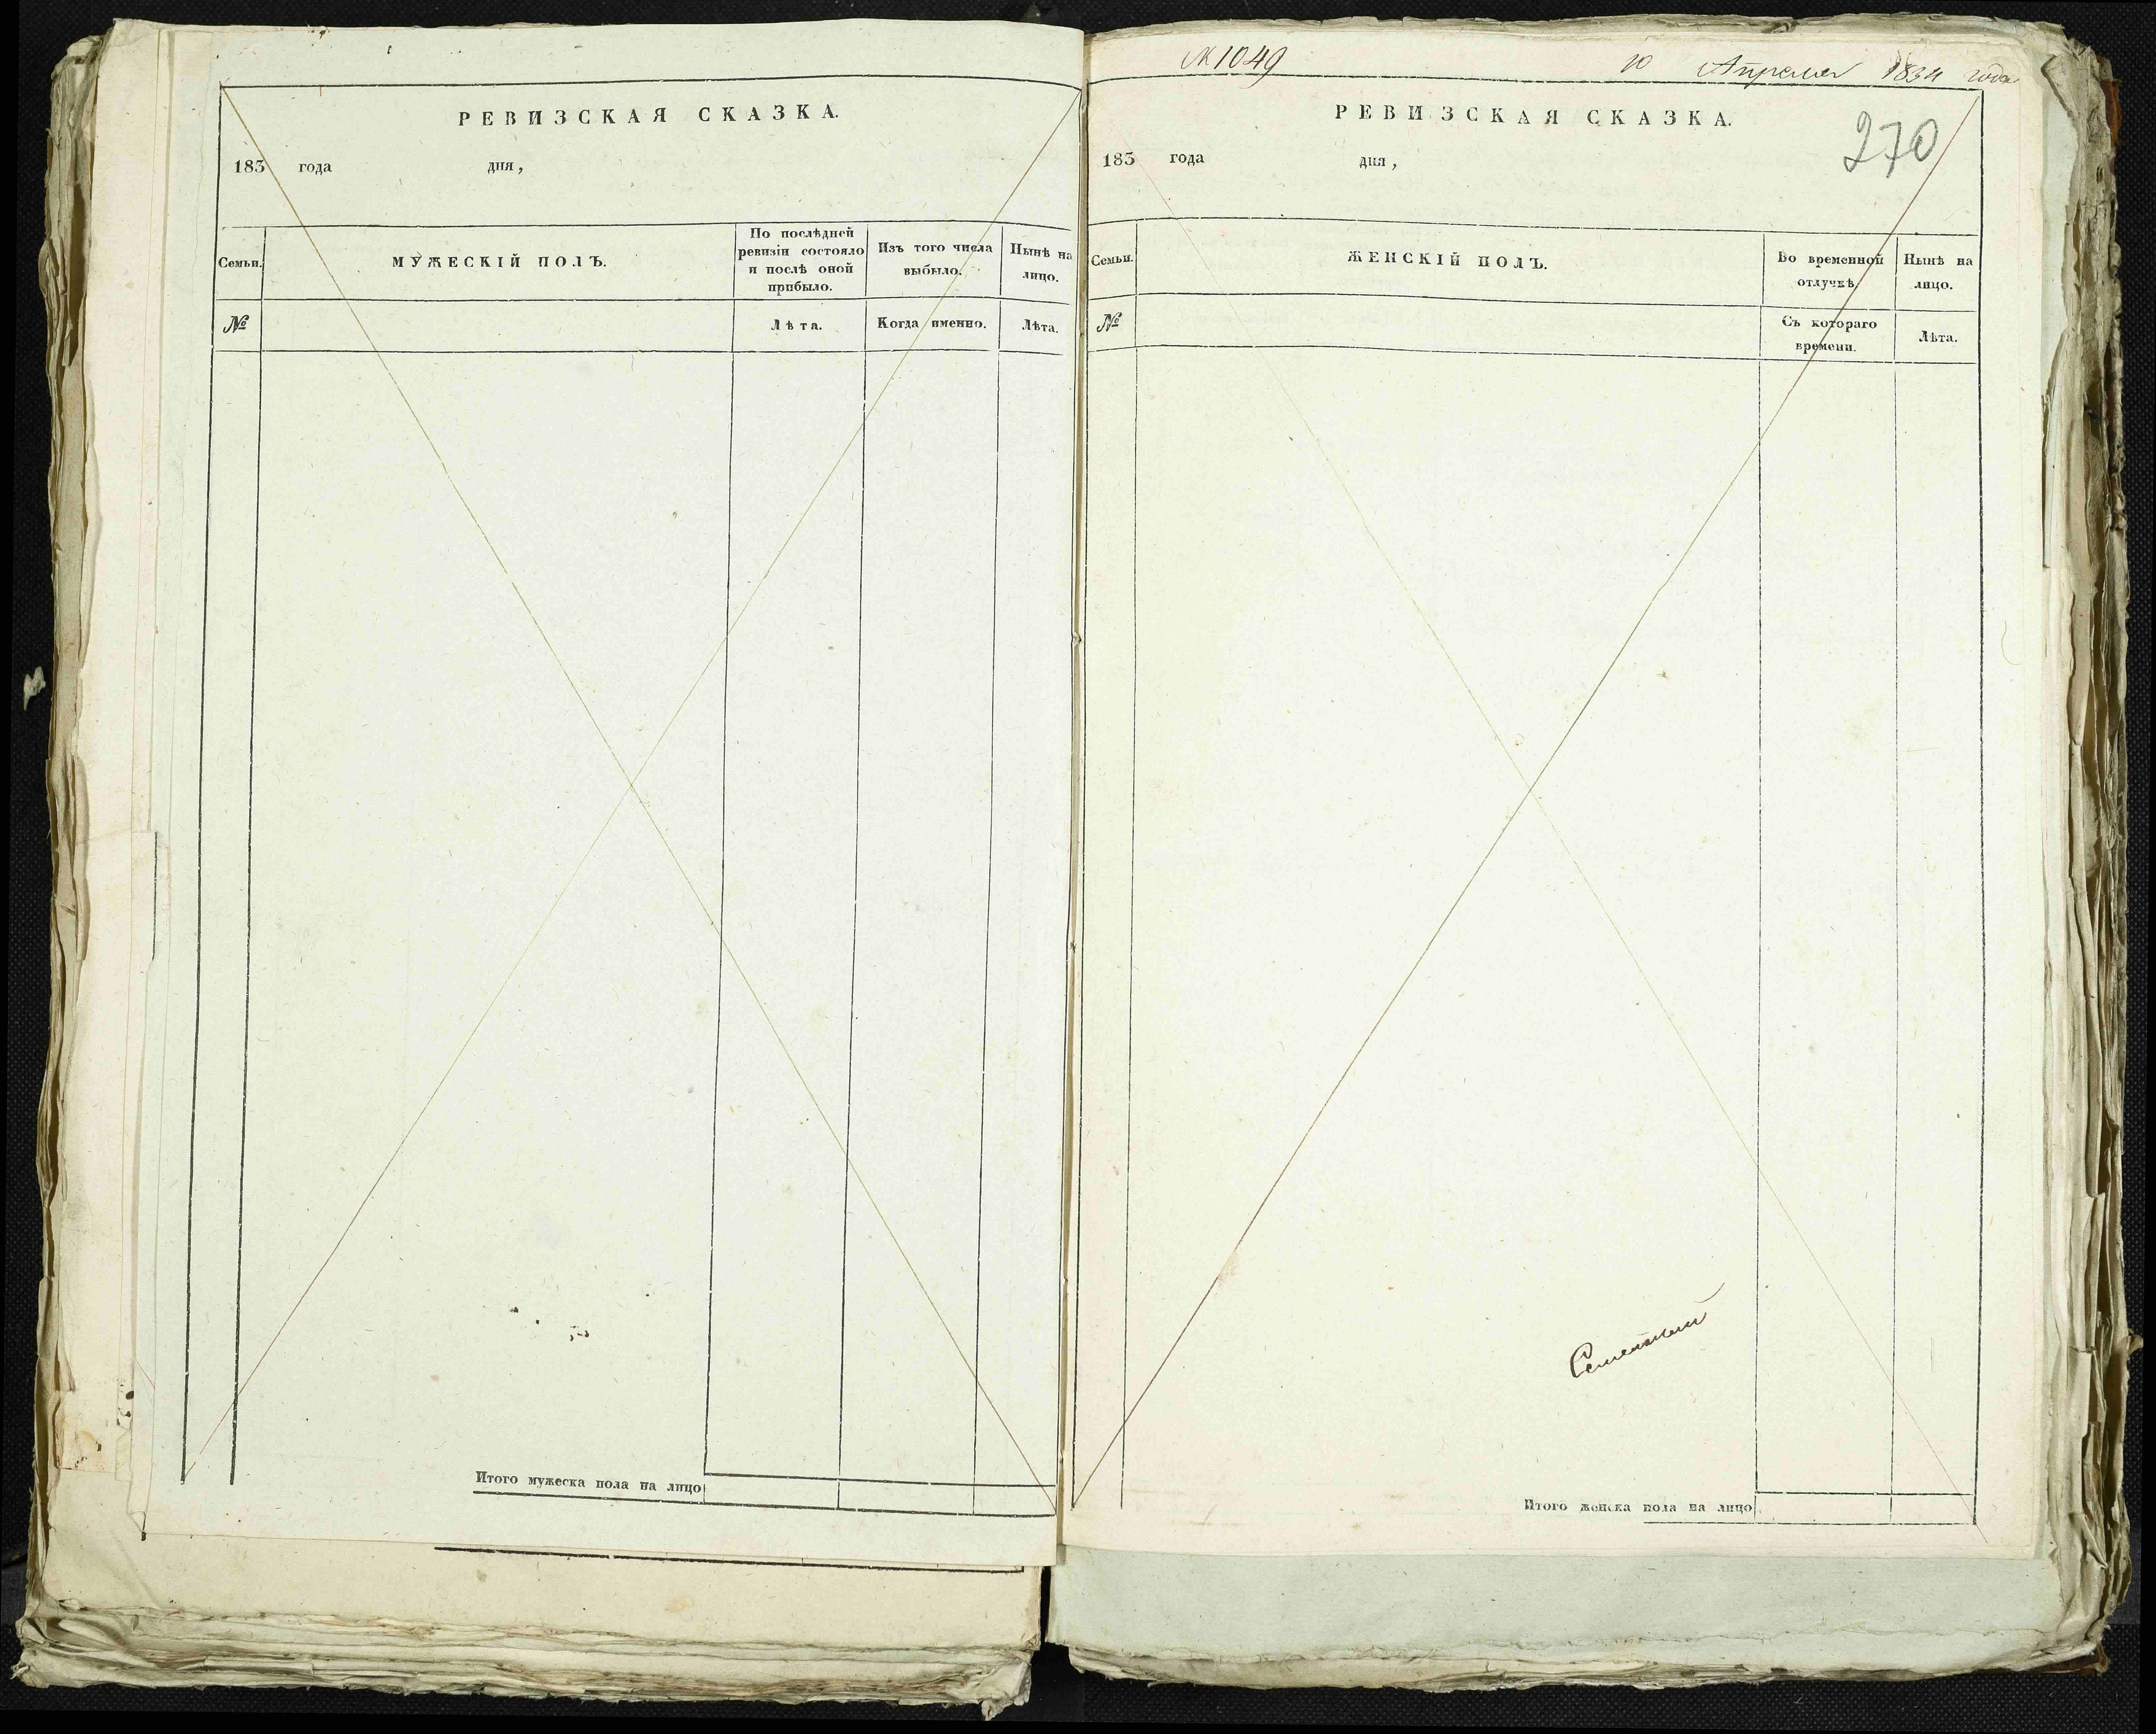 РЕВИЗСКАЯ СКАЗКА.
183 года дня,
Семьи.
МУЖЕСКІЙ ПОЛЪ.
По послѣдней
ревизіи состояло
и послѣ оной
прибыло.
Изъ того числа
выбыло.
Нынѣ на
лицо.
№
Лѣта.
Когда именно.
Лѣта.
Итого мужеска пола на лицо
№ 1049
10 Апреля 1834 года
РЕВИЗСКАЯ СКАЗКА.
270
183 года дня,
Семьи.
ЖЕНСКІЙ ПОЛЪ.
Во временной
отлучкѣ.
Нынѣ на
лицо.
№
Съ котораго
времени.
Лѣта.
Итого женска пола на лицо